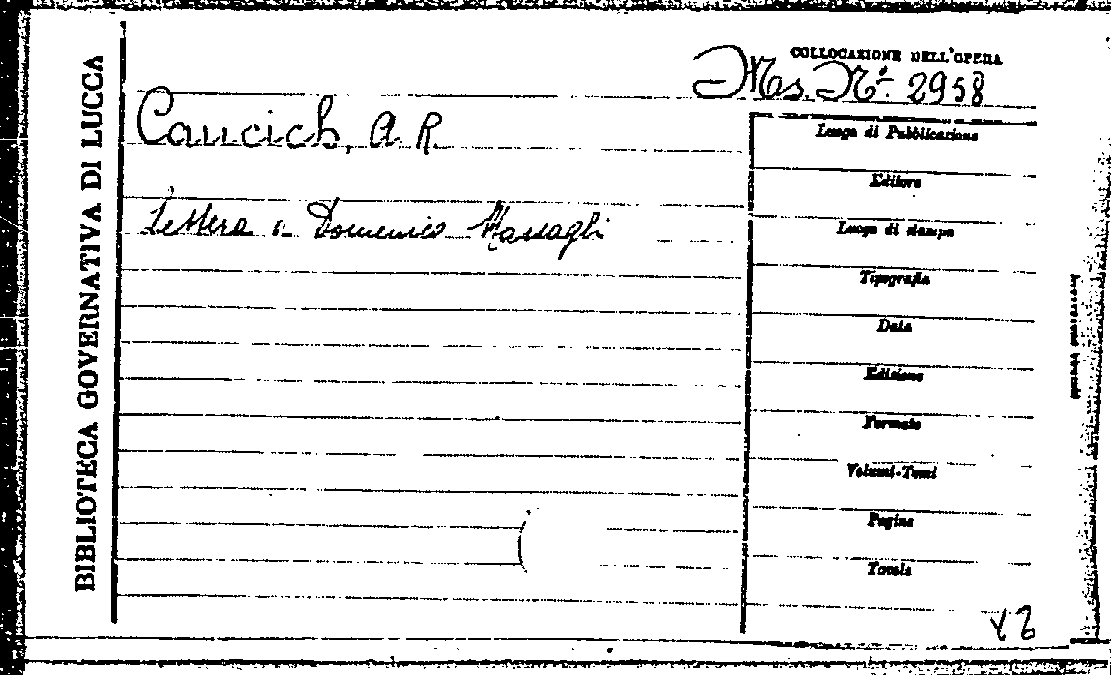 BIBLIOTECA GOVERNATIVA DI LUCCA
COLLOCAZIONE DELL'OPERA
Ms. N° 2958
Caucich, A. R.
Lettera a Domenico Massagli
Luogo di Pubblicazione
Editore
Luogo di stampa
Tipografia
Data
Edizione
Formato
Volumi-Tomi
Pagine
Tavole